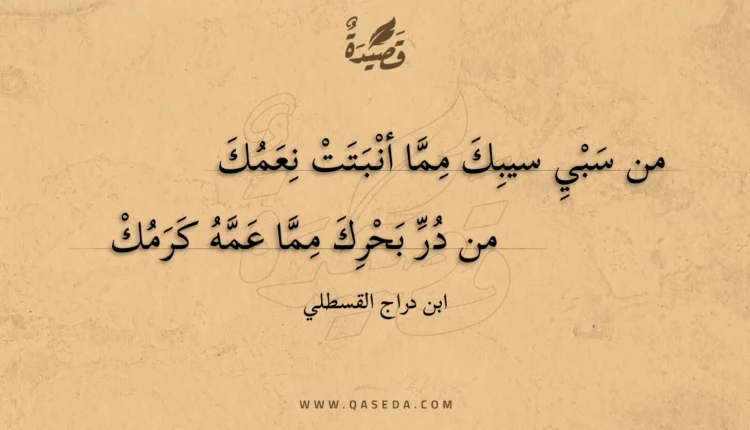 قَصِيْدَةٌ
من سَبْيِ سيبِكَ مِمَّا أنْبَتَتْ نِعَمُكَ
من دُرِّ بَحْرِكَ مِمَّا عَمَّهُ كَرَمُكْ
ابن دراج القسطلي
WWW.QASEDA.COM